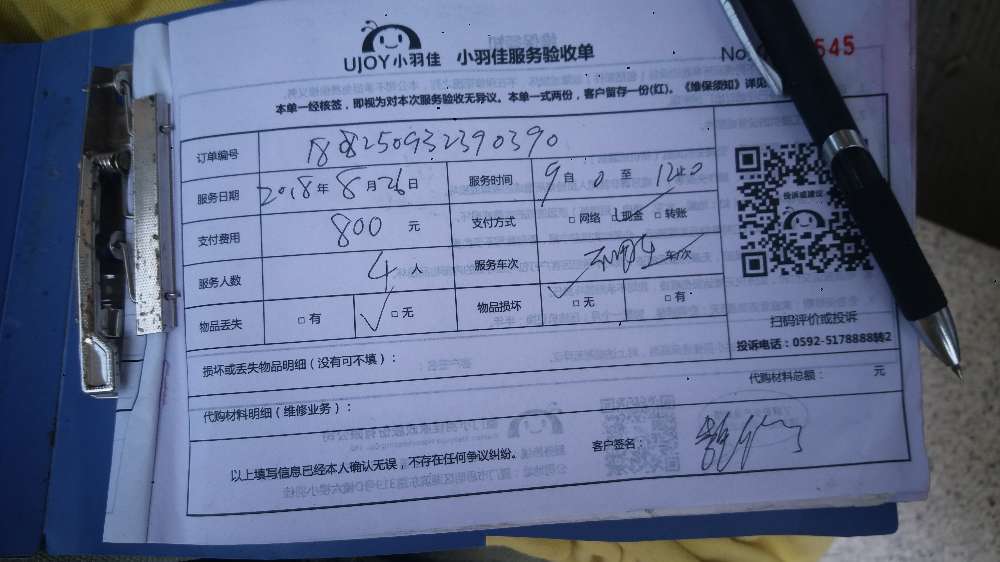 UJOY小羽佳 小羽佳服务验收单
No 545
本单一经核签，即视为对本次服务验收无异议。本单一式两份，客户留存一份(红)。《维保须知》详见
订单编号 1808250932390390
服务日期 2018年8月26日 服务时间 9自0至1240
支付费用 800元 支付方式 □网络 □现金 □转账
服务人数 4人 服务车次 车/次
物品丢失 □有 ✓□无 物品损坏 ✓□无 □有
投诉或建议
扫码评价或投诉
投诉电话：0592-5178888转2
损坏或丢失物品明细（没有可不填）：
代购材料明细（维修业务）： 代购材料总额： 元
以上填写信息已经本人确认无误，不存在任何争议纠纷。 客户签名：